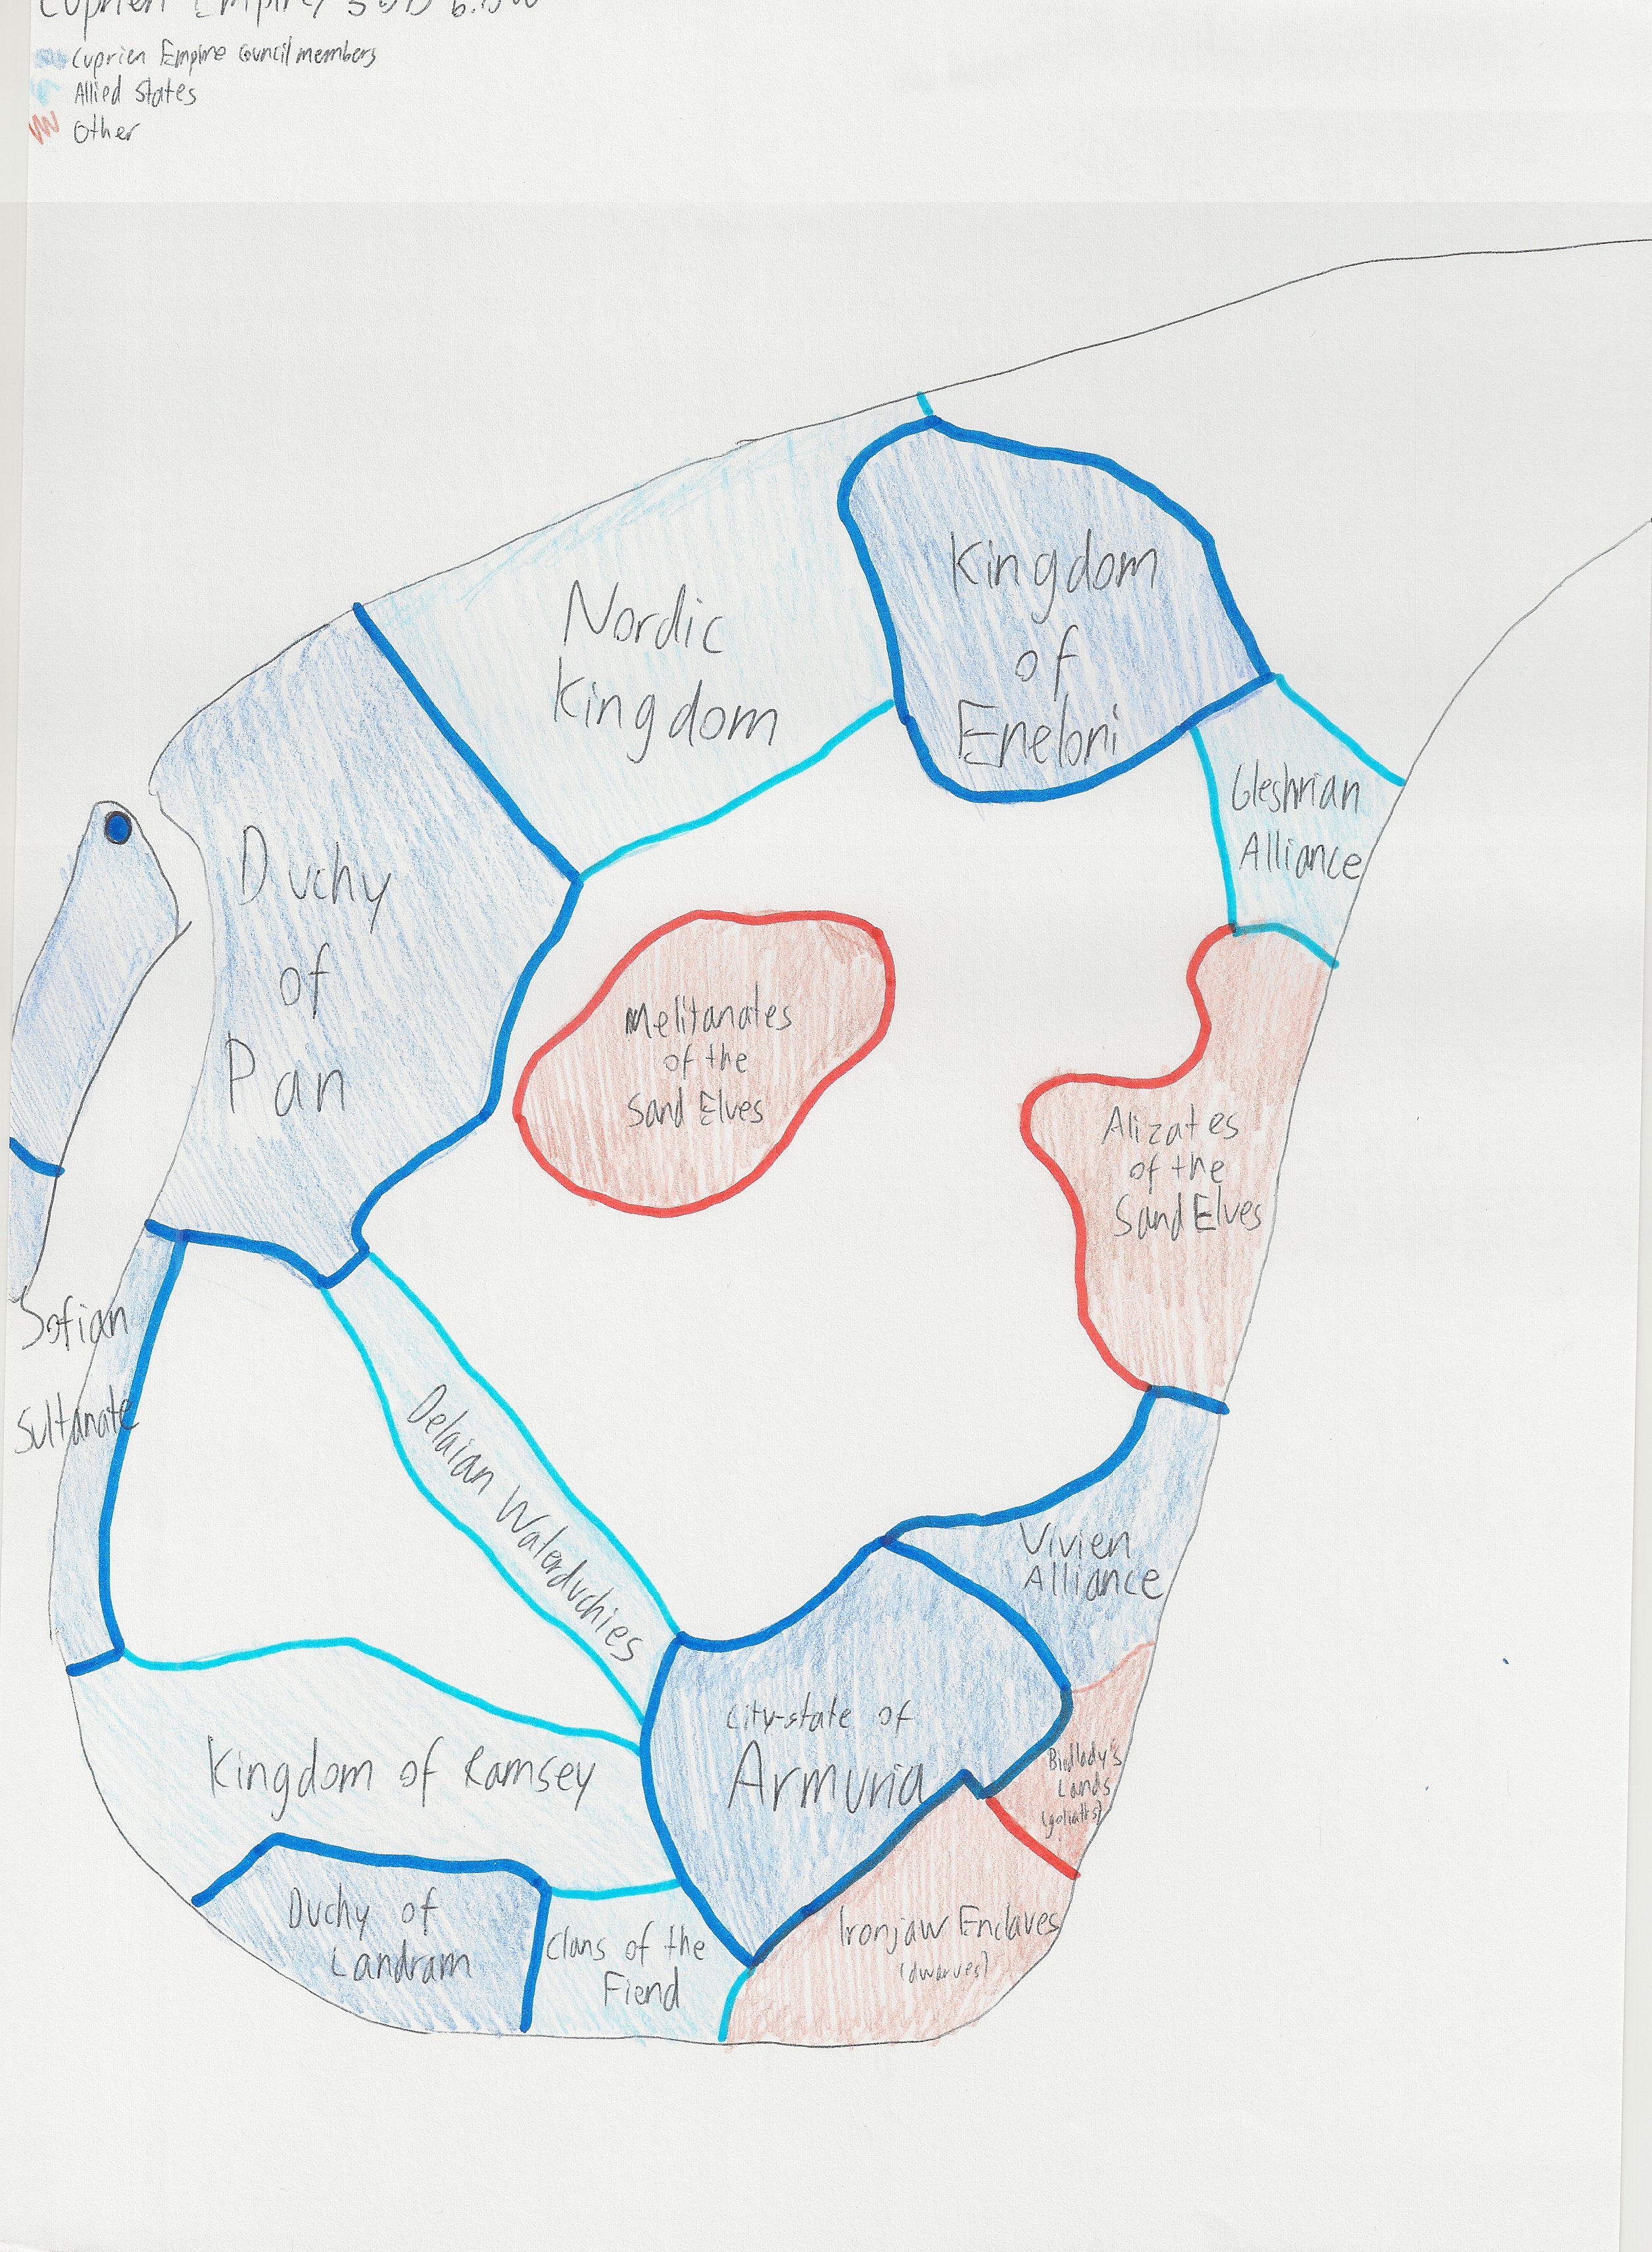 Cuprien Empire
Cuprien Empire Council members
Allied States
Other
Nordic
Kingdom
Kingdom
of
Eneloni
Gleshnian
Alliance
Duchy
of
Pan
Melitanates
of the
Sand Elves
Alizates
of the
Sand Elves
Sofian
Sultanate
Delaian Waterduchies
Vivien
Alliance
City-state of
Armuria
Kingdom of Ramsey
Lands
(goliaths)
Duchy of
Landram
Clans of the
Fiend
Ironjaw Enclaves
(dwarves)